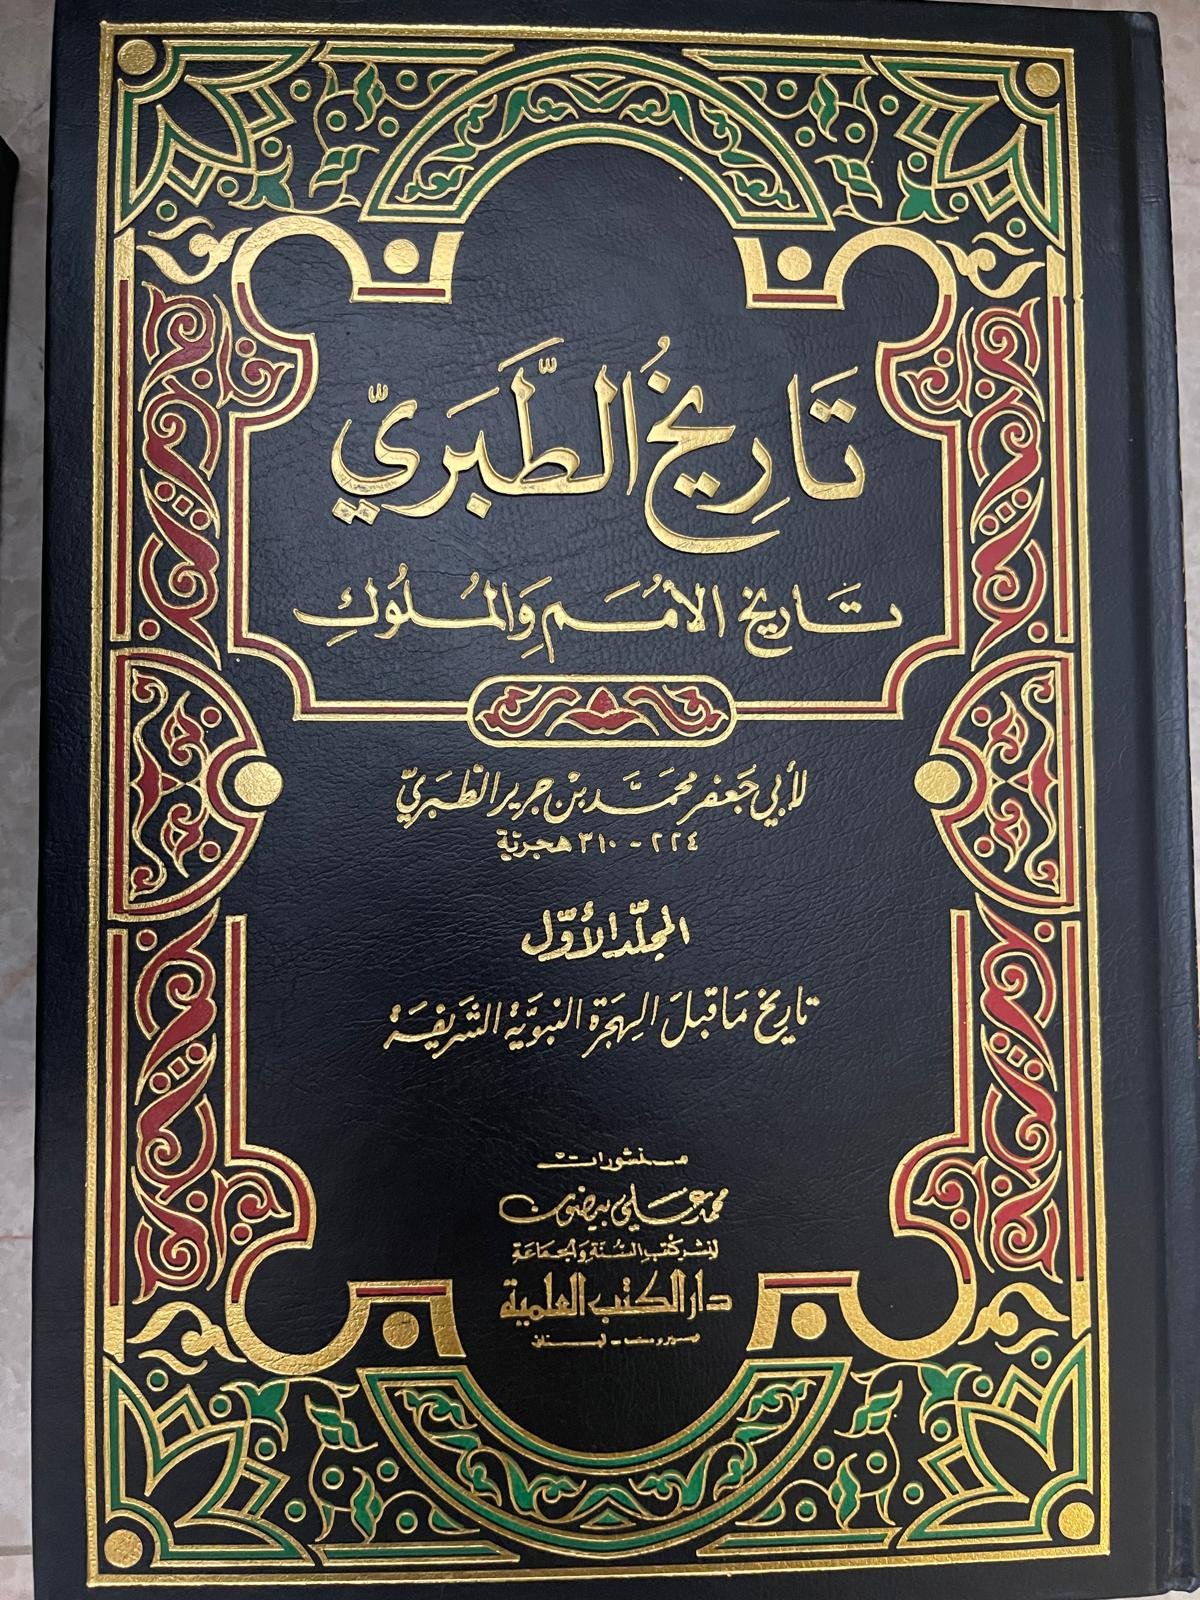 تَاريخُ الطَّبَريّ
تَاريخ الأُمَم وَالمُلوُكِ
لأبي جَعفر محَمَّد بن جرير الطَبَريّ
٢٢٤ - ٣١٠ هجريّة
المجلّد الأوّل
تاريخ مَا قبلَ الهِجَرة النبَويَّة الشَريفَة
منشورات
محمد علي بيضون
لنشر كتب السُنّة وَالجمَاعَة
دار الكتب العلمية
بيروت - لبنان